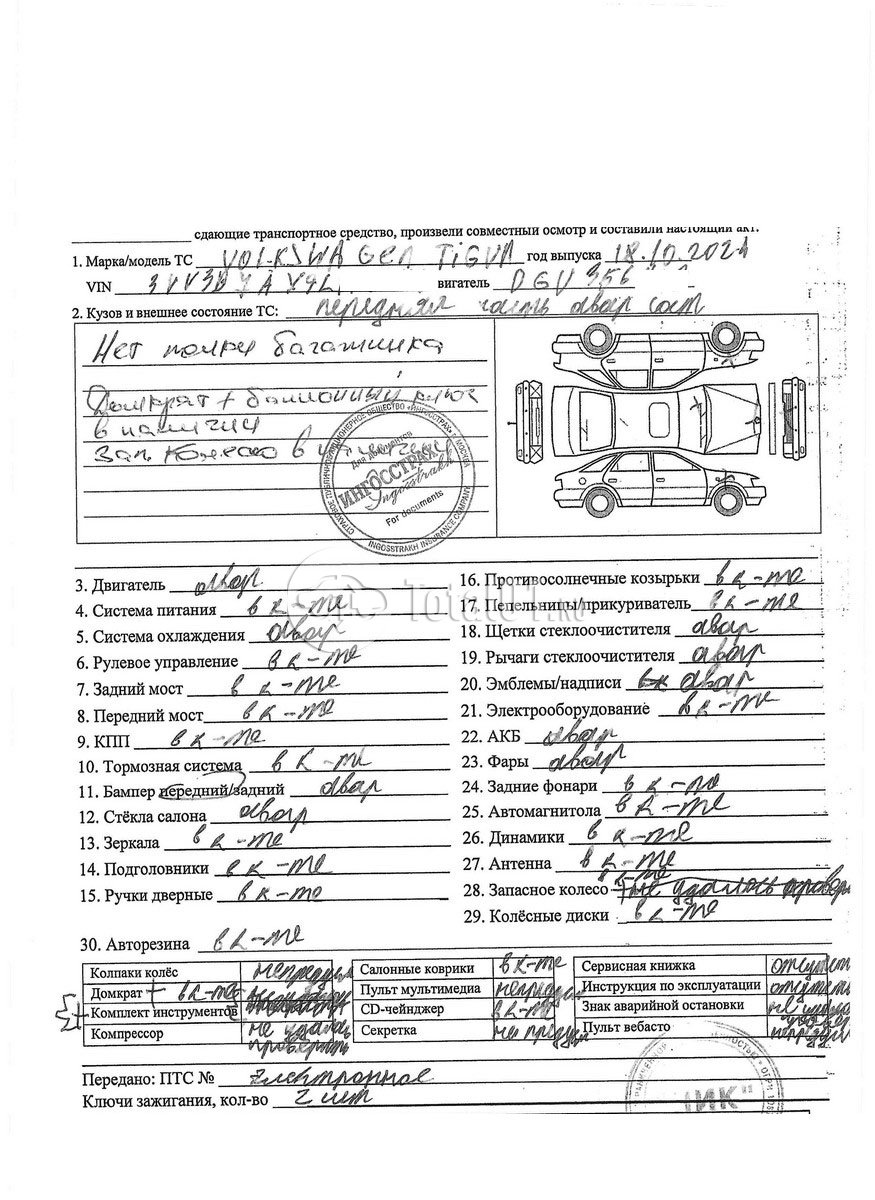 сдающие транспортное средство, произвели совместный осмотр и составили настоящий акт.
1. Марка/модель ТС VOLKSWAGEN TIGUA год выпуска 18.10.2021
VIN 3VV3B7AX9L вигатель DGU 356
2. Кузов и внешнее состояние ТС: передняя часть авар сост
Нет полки багажника
Домкрат + баллонный ключ
в наличии
Зап. колесо в наличии
СТРАХОВОЕ ПУБЛИЧНОЕ АКЦИОНЕРНОЕ ОБЩЕСТВО «ИНГОССТРАХ» МОСКВА
Для документов
ИНГОССТРАХ
Ingosstrakh
For documents
INGOSSTRAKH INSURANCE COMPANY
3. Двигатель авар
4. Система питания в к-те
5. Система охлаждения авар
6. Рулевое управление в к-те
7. Задний мост в к-те
8. Передний мост в к-те
9. КПП в к-те
10. Тормозная система в к-те
11. Бампер передний/задний авар
12. Стёкла салона авар
13. Зеркала в к-те
14. Подголовники в к-те
15. Ручки дверные в к-те
16. Противосолнечные козырьки в к-те
17. Пепельницы/прикуриватель в к-те
18. Щетки стеклоочистителя авар
19. Рычаги стеклоочистителя авар
20. Эмблемы/надписи авар
21. Электрооборудование в к-те
22. АКБ авар
23. Фары авар
24. Задние фонари в к-те
25. Автомагнитола в к-те
26. Динамики в к-те
27. Антенна в к-те
28. Запасное колесо в к-те не удалось провер
29. Колёсные диски в к-те
30. Авторезина в к-те
Колпаки колёс непредусм
Домкрат + в к-те
Комплект инструментов
Компрессор не удало проверить
Салонные коврики в к-те
Пульт мультимедиа непредусм
CD-чейнджер в к-те
Секретка не предусм
Сервисная книжка отсутств
Инструкция по эксплуатации отсутств
Знак аварийной остановки не
Пульт вебасто непредусм
Передано: ПТС № Электронное
Ключи зажигания, кол-во 2 шт
ИК"
Total01.ru